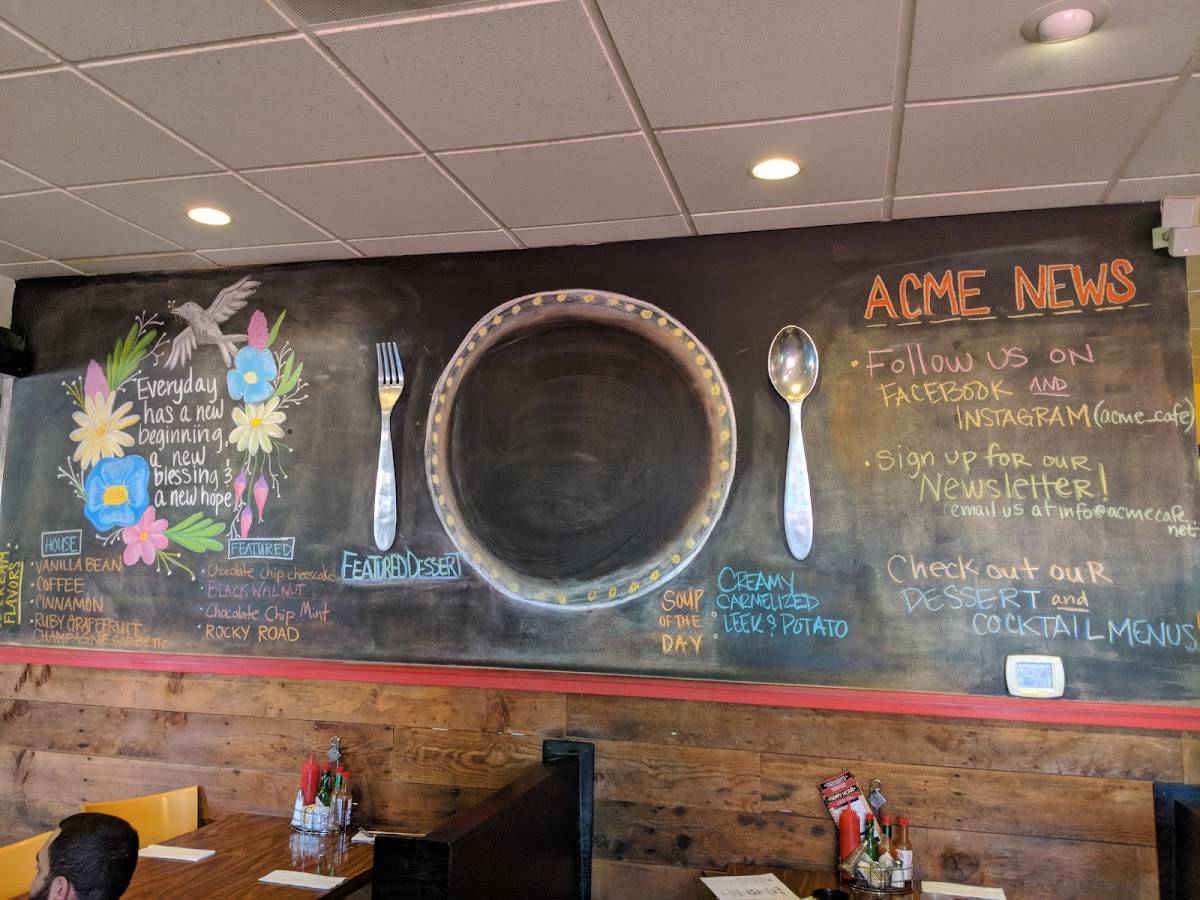 Everyday
has a new
beginning,
a new
blessing &
a new hope
HOUSE
• VANILLA BEAN
• COFFEE
• CINNAMON
• RUBY GRAPEFRUIT
CHAMPAGNE
FLAVORS
FEATURED
• Chocolate chip cheesecake
• BLACK WALNUT
• Chocolate Chip Mint
• ROCKY ROAD
FEATURED DESSERT
SOUP
OF THE
DAY
CREAMY
CARMELIZED
LEEK & POTATO
ACME NEWS
• Follow us on
FACEBOOK AND
INSTAGRAM (acme_cafe)
• Sign up for our
Newsletter!
(email us at info@acmecafe.
net
Check out our
DESSERT and
COCKTAIL MENUS!